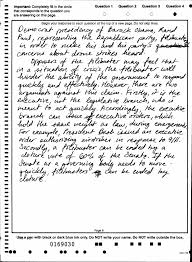 Important: Completely fill in the circle
that corresponds to the question you
are answering on this page.
Question 1 Question 2 Question 3 Question 4
Begin your response to each question at the top of a new page. Do not skip lines.
Democrat presidency of Barack Obama, Rand
Paul, representing the Republican party, filibustered
in order to make his and his party's
concerns about drone strikes heard.
Opposers of the filibuster may feel that
in a situation of crisis the filibuster will
hinder the ability of the government to respond
quickly and effectively. However, there are two
arguments against this claim. Firstly, it is the
executive, not the legislative branch, who is
meant to act quickly. Accordingly, the executive
branch can issue executive orders, which
hold the same weight as law, during emergencies.
For example, President Bush issued an executive
order authorizing wiretaps in response to 9/11.
Secondly, a filibuster can be ended by a
cloture vote of 60% of the Senate. If the
Senate as a governing body needs to move
quickly, filibusters can be ended by
cloture.
Page 9
Use a pen with black or dark blue ink only. Do NOT write your name. Do NOT write outside the box.
0169030